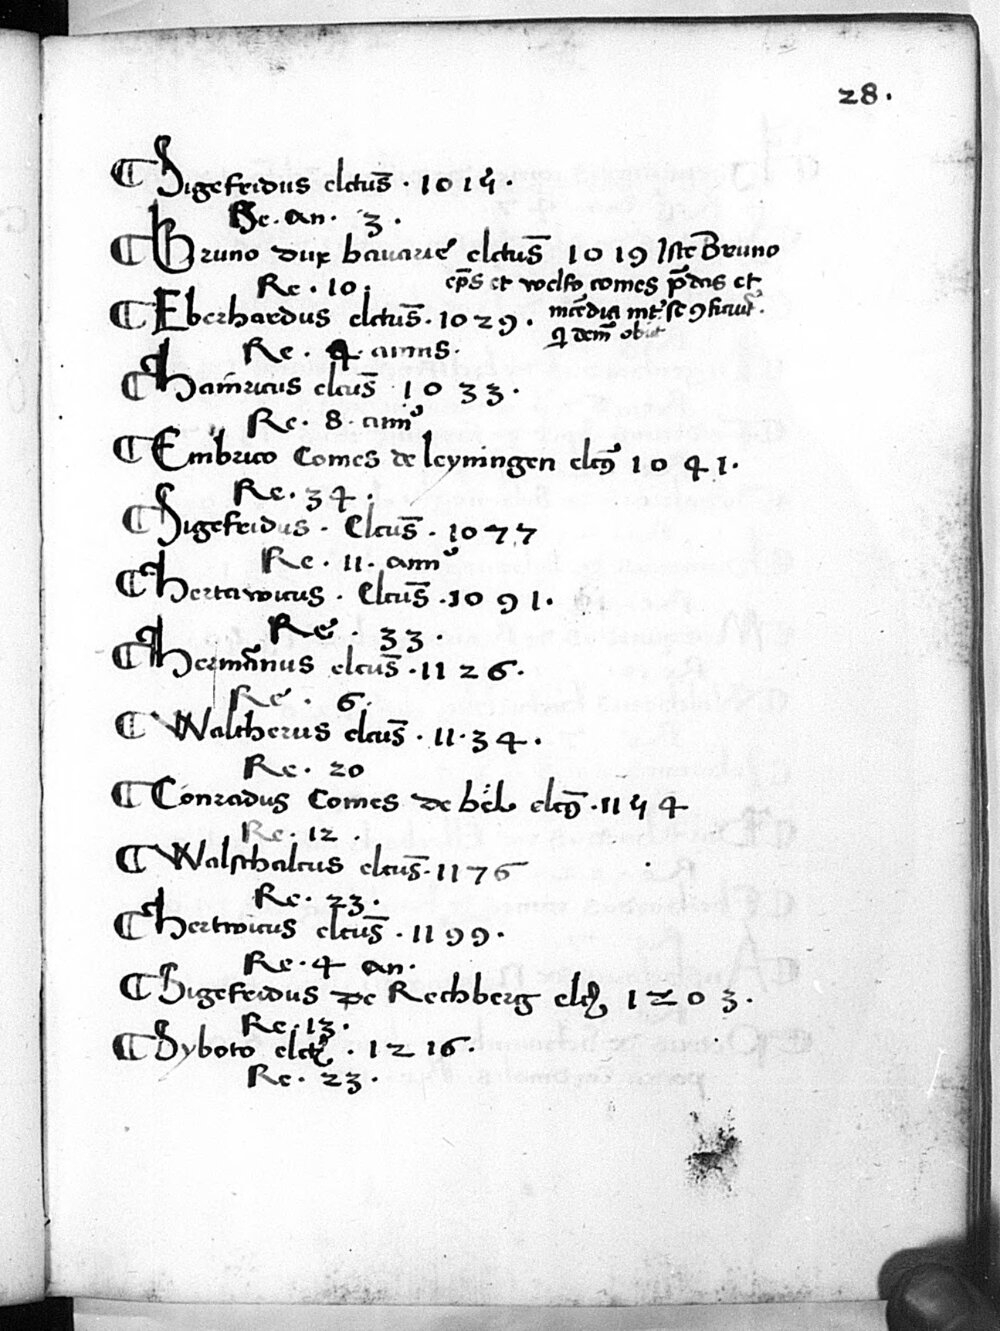 28.
Sigefridus elctus̄ · 1014 ·
Re · an · 3 ·
Bruno dux bauarie elctus̄ 1019 Iste Bruno
Re · 10 · ep̄s et welfo comes p̄dns et
Eberhardus elctus̄ · 1029 ·
Re · 4 · annis ·
q̄ dem̄ obiit
Hainricus elcus̄ 1033 ·
Re · 8 · ann⁹
Embrico Comes de leyningen elcꝯ 1041 ·
Re · 34 ·
Sigefridus · Elcus̄ · 1077
Re · 11 · ann⁹
Hertawicus · Elcus̄ · 1091 ·
Re · 33 ·
Hermānus elcus̄ · 1126 ·
Re · 6 ·
Waltherus elcus̄ · 11·34 ·
Re · 20
Conradus Comes de elcꝯ · 1154
Re · 12 ·
Walsthalcus elcus̄ · 1176
Re · 23 ·
Hertwicus elcus̄ · 1199 ·
Re · 4 an ·
Sigefridus de Rechberg elcꝯ 1203 ·
Re · 13 ·
Syboto elctꝯ · 1216 ·
Re · 23 ·